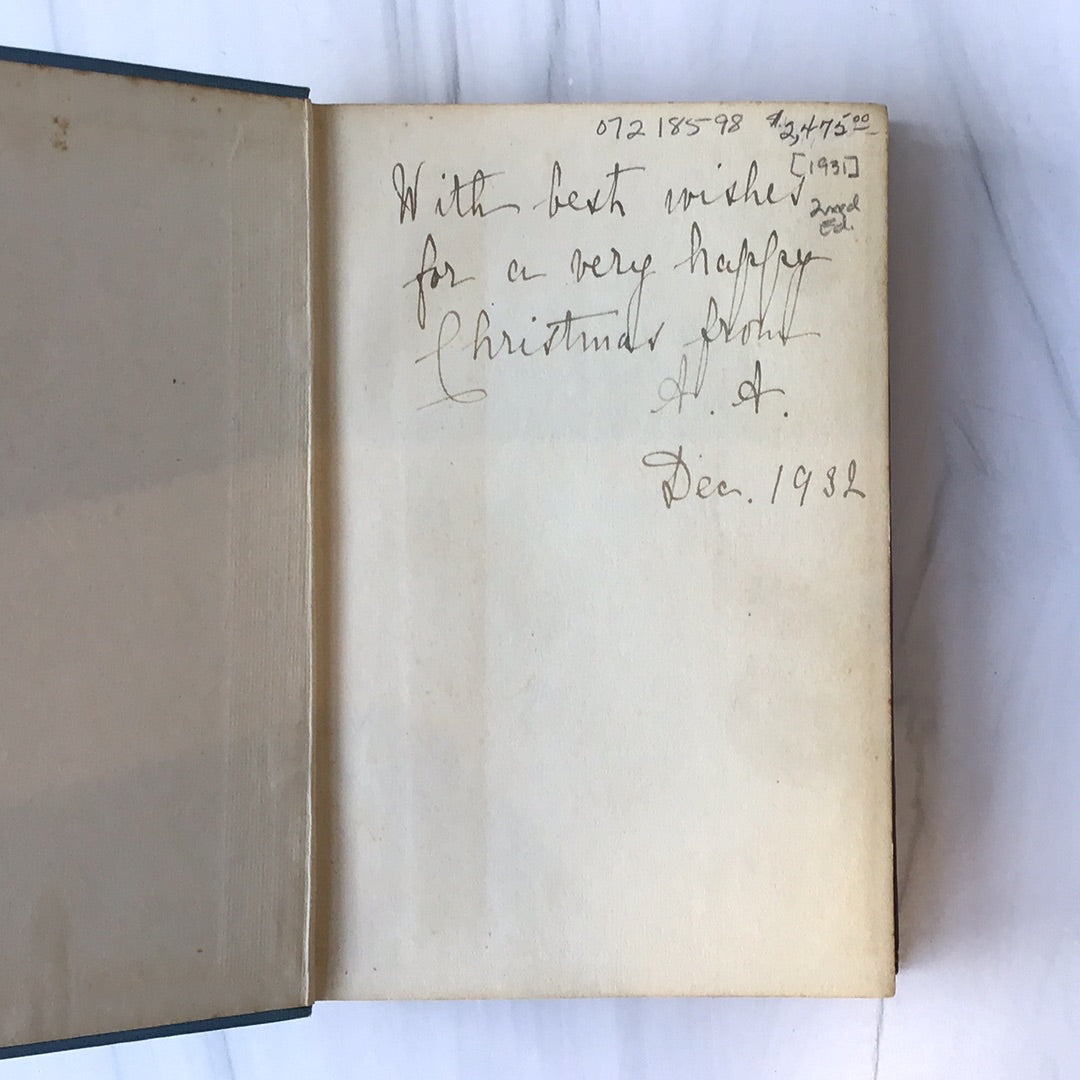 072 185-98 $2,475.00
[1931]
2nd
Ed.
With best wishes
for a very happy
Christmas from
A. A.
Dec. 1932